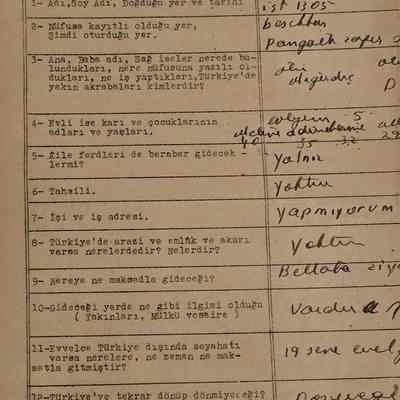 1- Adı,Soy Adı, Doğduğu yer ve tarihi
ist 1305
2- Nüfusa kayıtlı olduğu yer,
Şimdi oturduğu yer.
beşiktaş
Pangaltı
3- Ana, Baba adı, Sağ iseler nerede bu-
lundukları, nere nüfusuna yazılı ol-
dukları, ne iş yaptıkları,Türkiye'de
yakın akrabaları kimlerdir?
4- Evli ise karı ve çocuklarının
adları ve yaşları.
evliyim 5
40 35 32 29
5- Aile ferdleri de beraber gidecek -
lermi?
Yalnız
6- Tahsili.
Yoktur
7- İşi ve iş adresi.
yapmıyorum
8- Türkiye'de arazi ve emlâk ve akarı
varsa nerelerdedir? Nelerdir?
Yoktur
9- Nereye ne maksadla gideceği?
10-Gideceği yerde ne gibi ilgisi olduğu
( Yakınları, Mülkü vesaire )
Vardır
11-Evvelce Türkiye dışında seyahatı
varsa nerelere, ne zaman ne mak-
satla gitmiştir?
19 sene evel
12-Türkiye'ye tekrar dönüp dönmiyeceği?